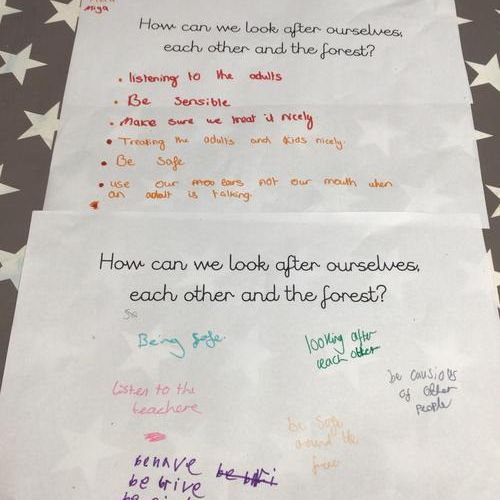 Miya
How can we look after ourselves,
each other and the forest?
• listening to the adults
• Be Sensible
• Make sure we treat it nicely
• Treating the adults and kids nicely.
• Be Safe
• use our ears not our mouth when
an adult is talking.
How can we look after ourselves,
each other and the forest?
Being Safe.
looking after
each other
Listen to the
teachere
be causios
of other
people
be safe
around the
behave
be brive